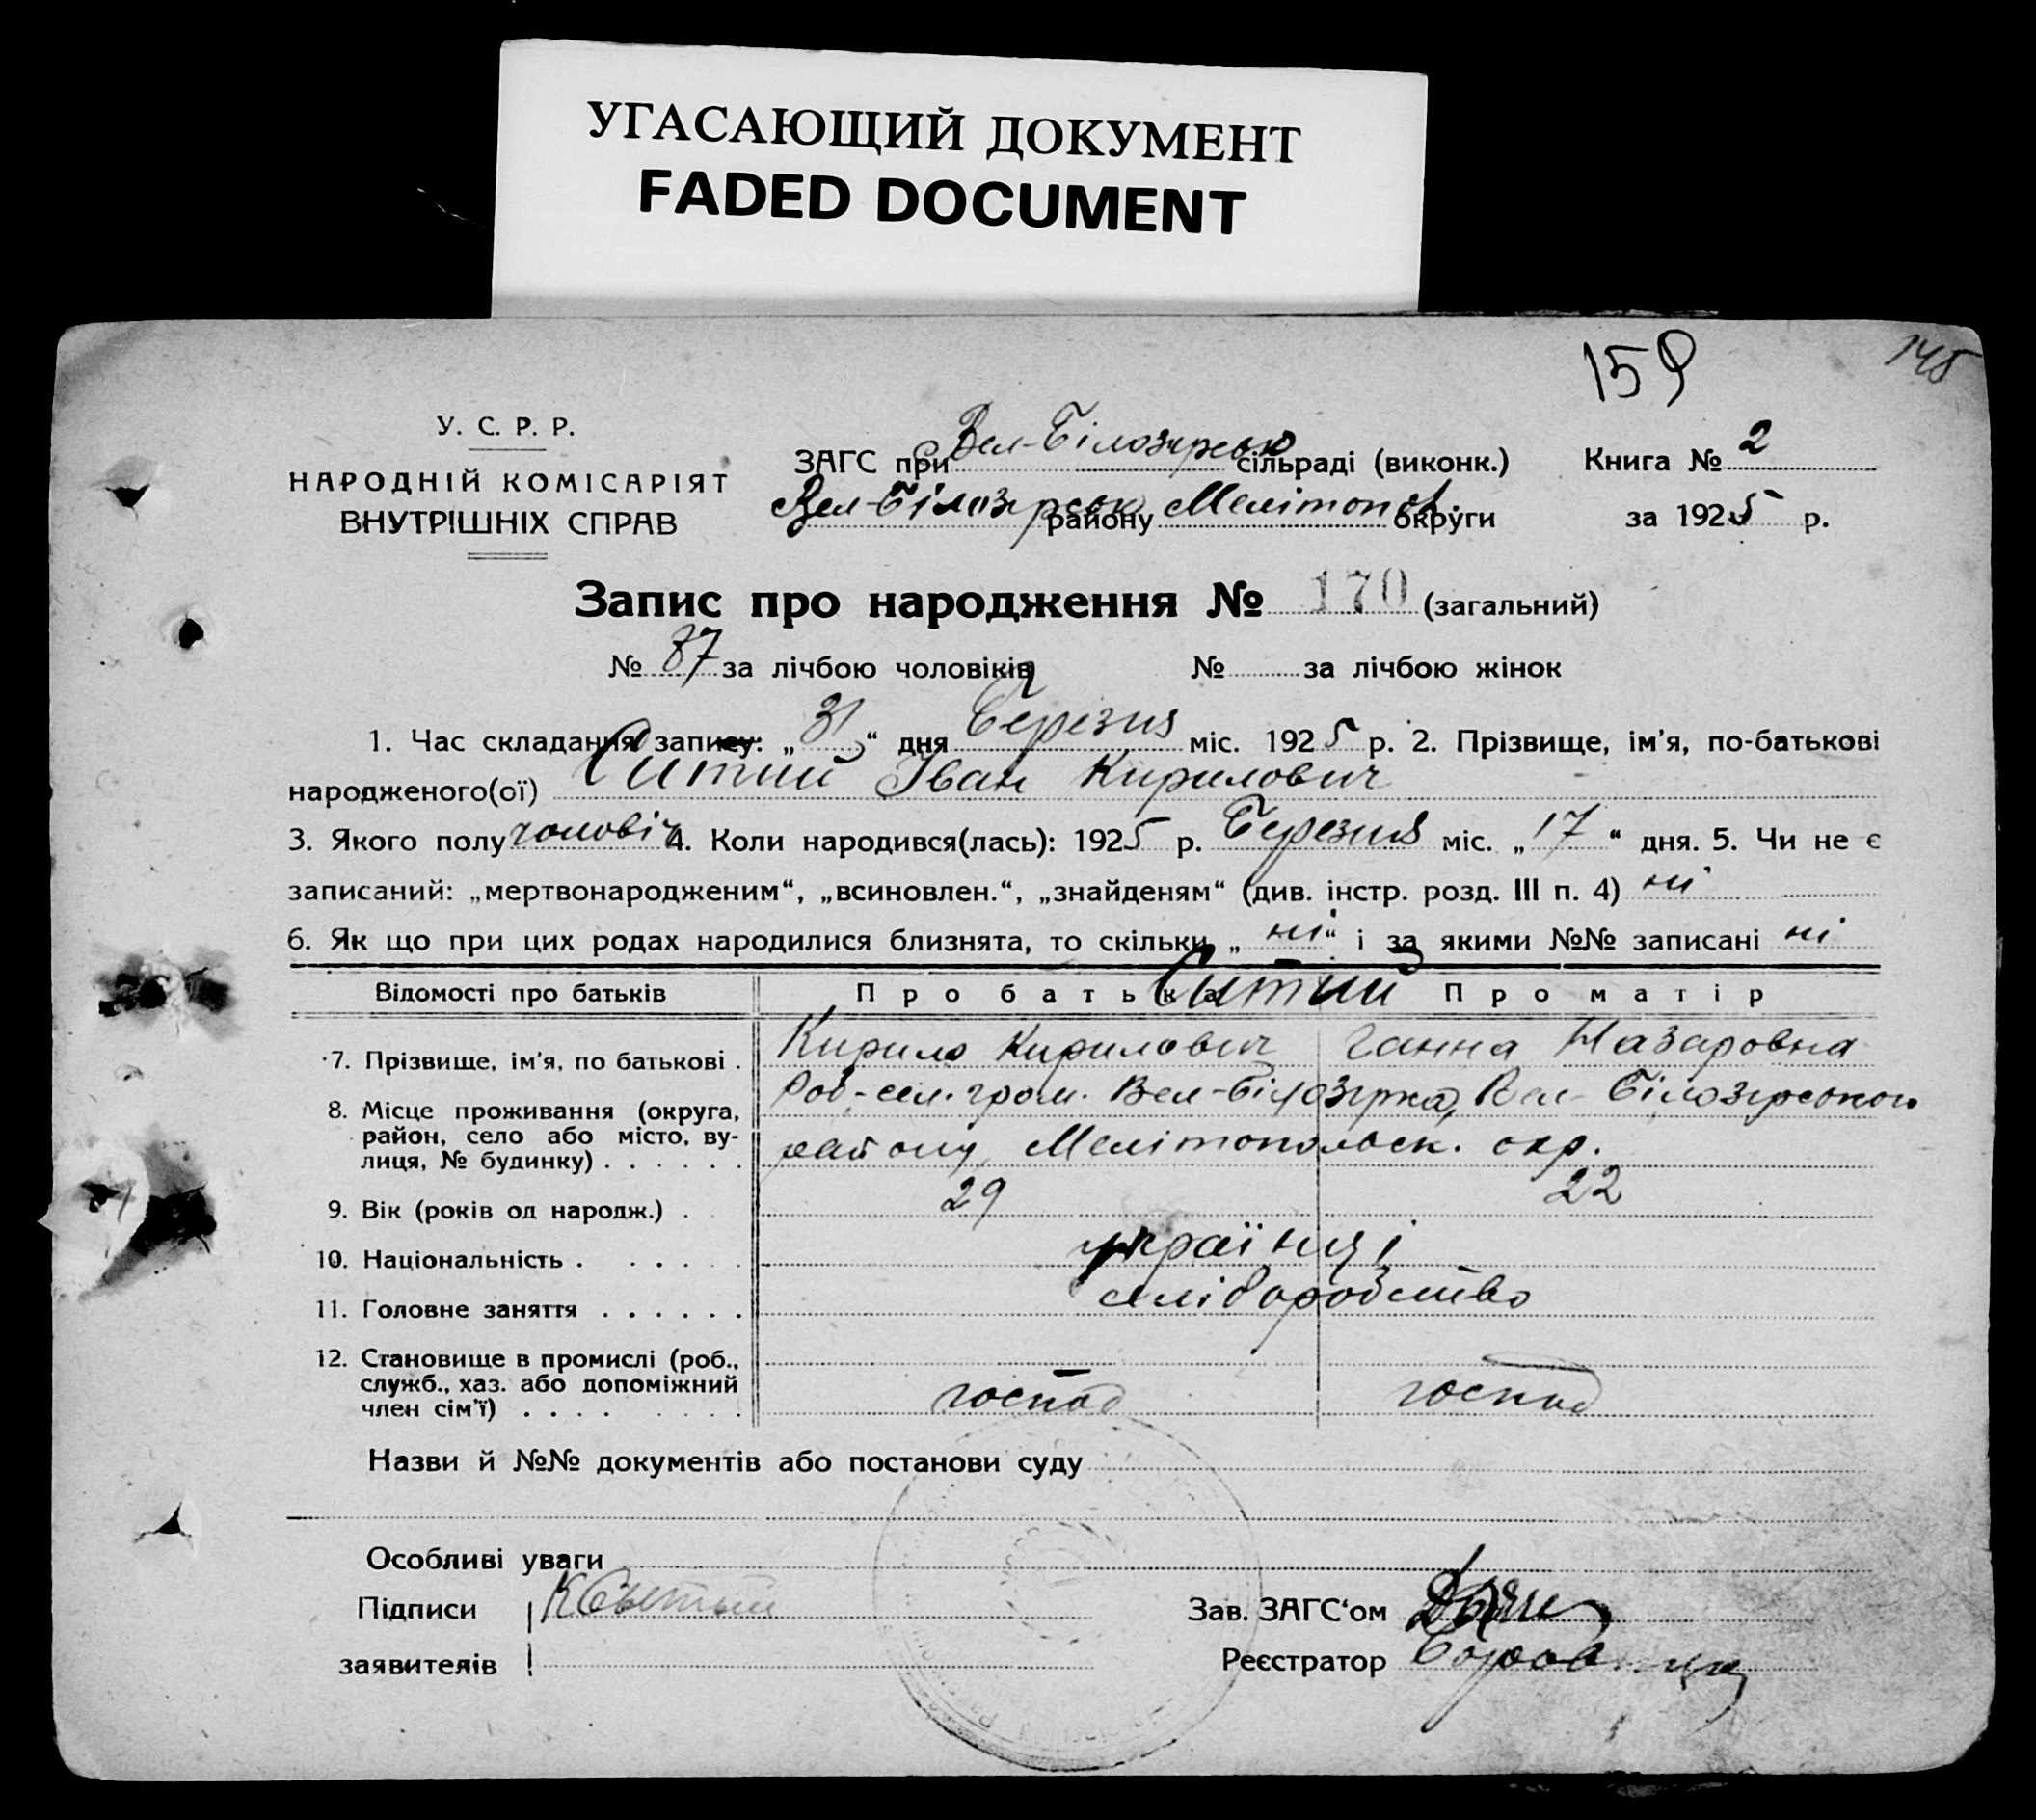 УГАСАЮЩИЙ ДОКУМЕНТ
FADED DOCUMENT
159 145
У. С. Р. Р.
НАРОДНІЙ КОМІСАРІЯТ
ВНУТРІШНІХ СПРАВ
ЗАГС при Вел-Білозирськ сільраді (виконк.) Книга № 2
Вел-Білозирськ району Мелітоп округи за 1925 р.
Запис про народження № 170 (загальний)
№ 87 за лічбою чоловіків № за лічбою жінок
1. Час складання запису: „31“ дня Березня міс. 1925 р. 2. Прізвище, ім'я, по-батькові
народженого(ої) Ситий Іван Кирилович
3. Якого полу чоловіч 4. Коли народився(лась): 1925 р. Березня міс. „17“ дня. 5. Чи не є
записаний: „мертвонародженим“, „всиновлен.“, „знайденям“ (див. інстр. розд. III п. 4) ні
6. Як що при цих родах народилися близнята, то скільки „ні“ і за якими №№ записані ні
Відомості про батьків Про батька Про матір
Ситии
7. Прізвище, ім'я, по батькові . Кирило Кирилович Ганна Назаровна
8. Місце проживання (округа, район, село або місто, вулиця, № будинку) . . . . . . Роб-сел. гром. Вел-Білозирка, Вел-Білозирського
району Мелітопольск. окр.
9. Вік (років од народж.) . 29 22
10. Національність . . . . . . українці
11. Головне заняття . . . . . . хліборобство
12. Становище в промислі (роб., служб., хаз. або допоміжний член сім'ї) . . . . господ господ
Назви й №№ документів або постанови суду
Особливі уваги
Підписи К Сытый Зав. ЗАГС'ом
заявителів Реєстратор